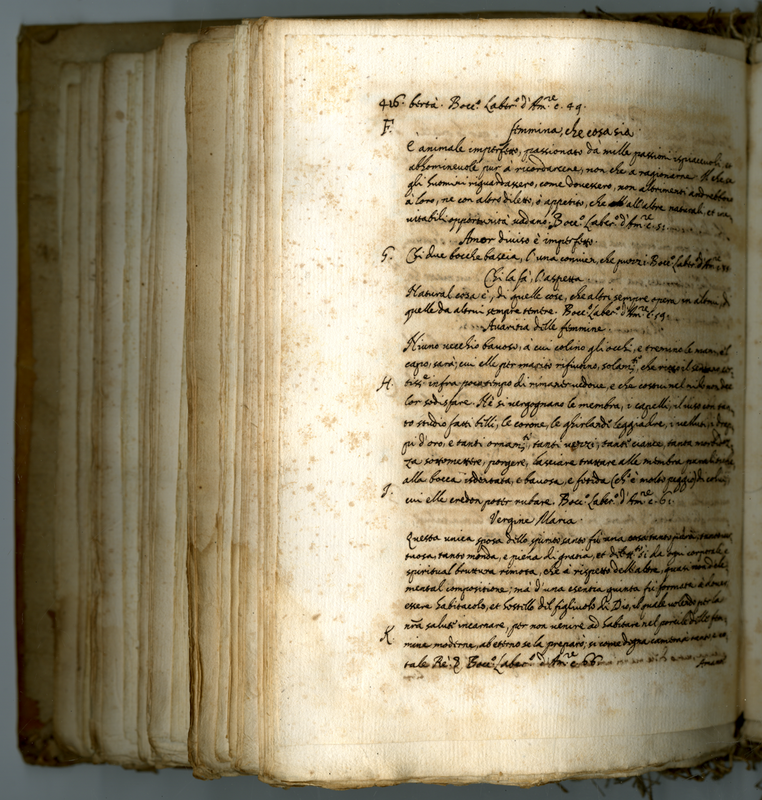 416. bertà. Bocc.º Laber.º d'Am.re c. 49.
F. femmina, che cosa sia.
È animale imperfetto, passionato da mille passioni ispiacevoli, e
abbominevole pur à ricordarcene, non che à ragionarne. Il che se
gli huomini riguardassero, come dovessero, non altrimenti andrebbono
à loro, ne con altro diletto, ò appetito, che all'altre naturali, et ine
vitabili opportunità vadano. Bocc.º Laber.º d'Am.re c. 51.
Amor diviso è imperfetto.
G. Chi due bocche bascia, l'una convien, che puzzi. Bocc.º Laber.º d'Am.re c.
Chi la fà, l'aspetta.
Natural cosa è, di quelle cose, che altri sempre opera in altrui, di
quelle da altrui sempre temere. Bocc.º Laber.º d'Am.re c. 59.
Avaritia delle femmine.
Niuno vecchio bavoso, à cui colino gli occhi, e tremino le mani, e'l
capo, sarà; cui elle per marito rifiutino, solam.te, che ricco il sentano cer
tiss.º infra poco tempo di rimaner vedove, e che costui nel nido non dee
H. lor sodisfare. Nè si vergognano le membra, i capelli, il viso con tan
to studio fatti belli, le corone, le ghirlande leggiadre, i velluti, i drap
pi d'oro, e tanti ornam.ti, tanti vezzi, tante ciance, tanta morbidez
za sottomettere, porgere, lasciare trattare alle membra paralitiche,
alla bocca isdentata, e bavosa, e fetida (ch'è molto peggio) di colui,
J. cui elle credon poter rubare. Bocc.º Laber.º d'Am.re c. 61.
Vergine Maria.
Questa unica sposa dello spirito santo fù una cosa tanto pura, tanto vir
tuosa, tanto monda, e piena di gratia, et di si da ogni corporale, e
spiritual bruttura rimota, che à rispetto dell'altre, quasi non d'ele
mental compositione; mà d'una essentia quinta fù formata à dover
essere habitacolo, et hostello del figliuolo di Dio, il quale volendo per la
nrã salute incarnare, per non venire ad habitare nel porcile delle fem
K. mine moderne, ab eterno se la preparò, si come degna camera à tanto e co
tale Rè. Bocc.º Laber.º d'Am.re c. 66
Amore